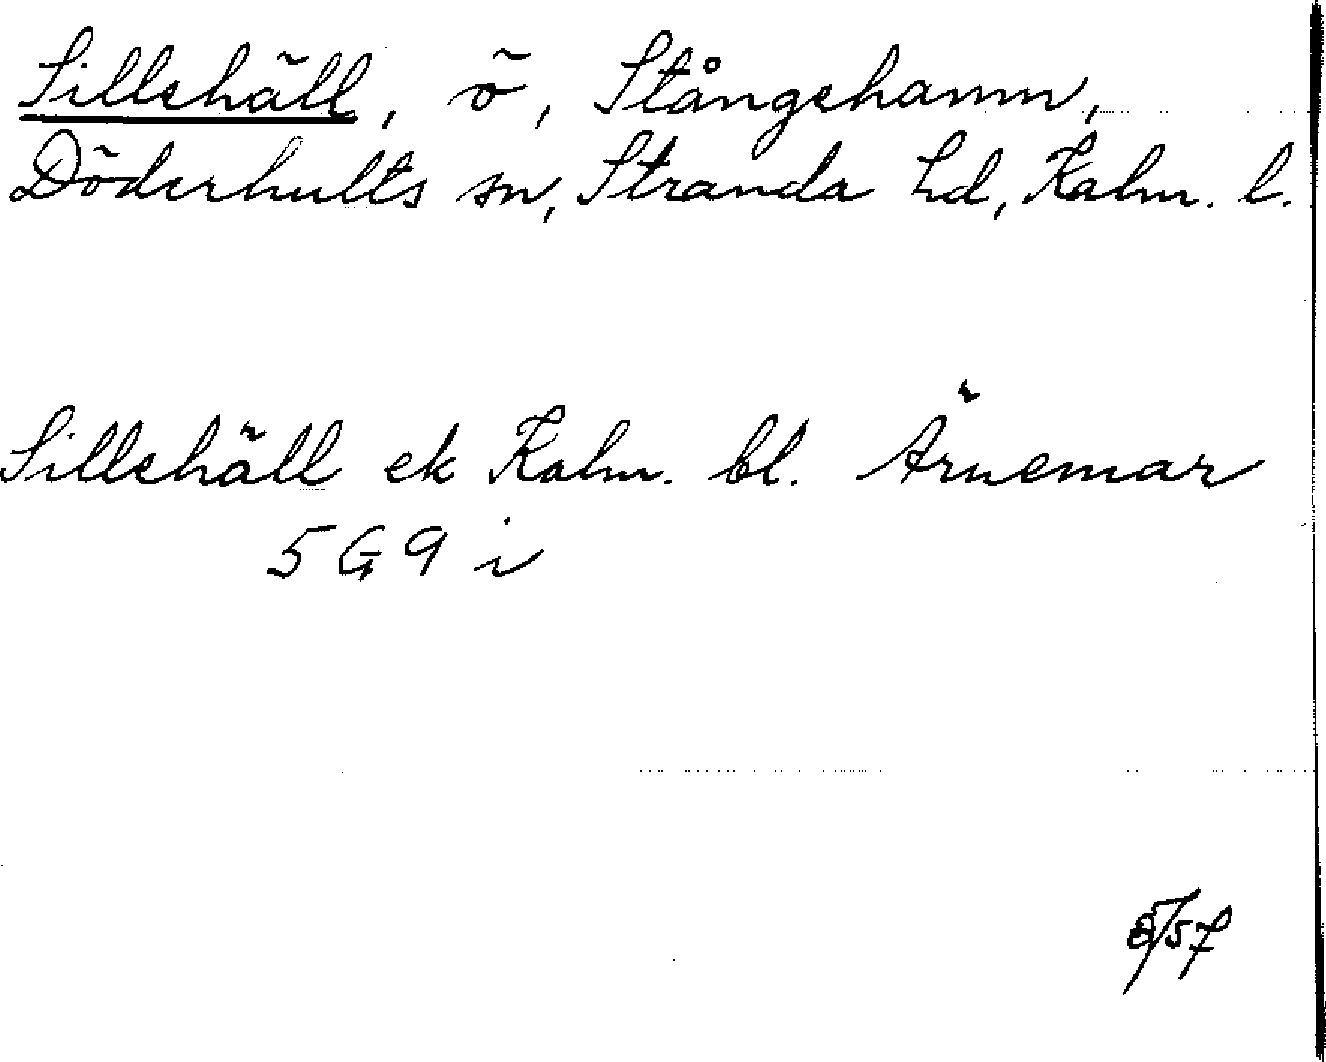 Sillehäll, ö, Stångehamn,
Döderhults sn, Stranda hd, Kalm. l.
Sillehäll ek Kalm. bl. Ärnemar
5 G 9 i